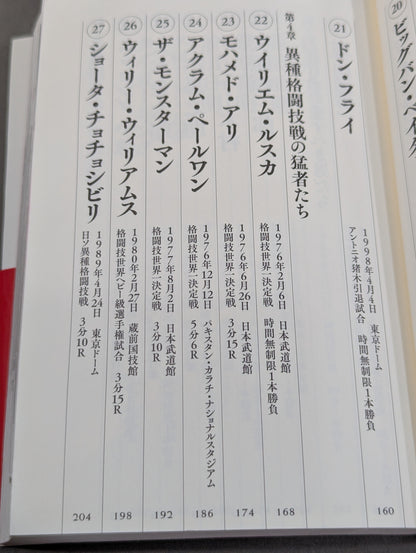 ⑳ ビッグバン・ベイダー
㉑ ドン・フライ
1998年4月4日 東京ドーム
アントニオ猪木引退試合 時間無制限1本勝負
160
第4章 異種格闘技戦の猛者たち
㉒ ウイリエム・ルスカ
1976年2月6日 日本武道館
格闘技世界一決定戦 時間無制限1本勝負
168
㉓ モハメド・アリ
1976年6月26日 日本武道館
格闘技世界一決定戦 3分15R
174
㉔ アクラム・ペールワン
1976年12月12日 パキスタン・カラチ・ナショナルスタジアム
格闘技世界一決定戦 5分6R
186
㉕ ザ・モンスターマン
1977年8月2日 日本武道館
格闘技世界一決定戦 3分10R
192
㉖ ウィリー・ウィリアムス
1980年2月27日 蔵前国技館
格闘技世界ヘビー級選手権試合 3分15R
198
㉗ ショータ・チョチョシビリ
1989年4月24日 東京ドーム
日ソ異種格闘技戦 3分10R
204